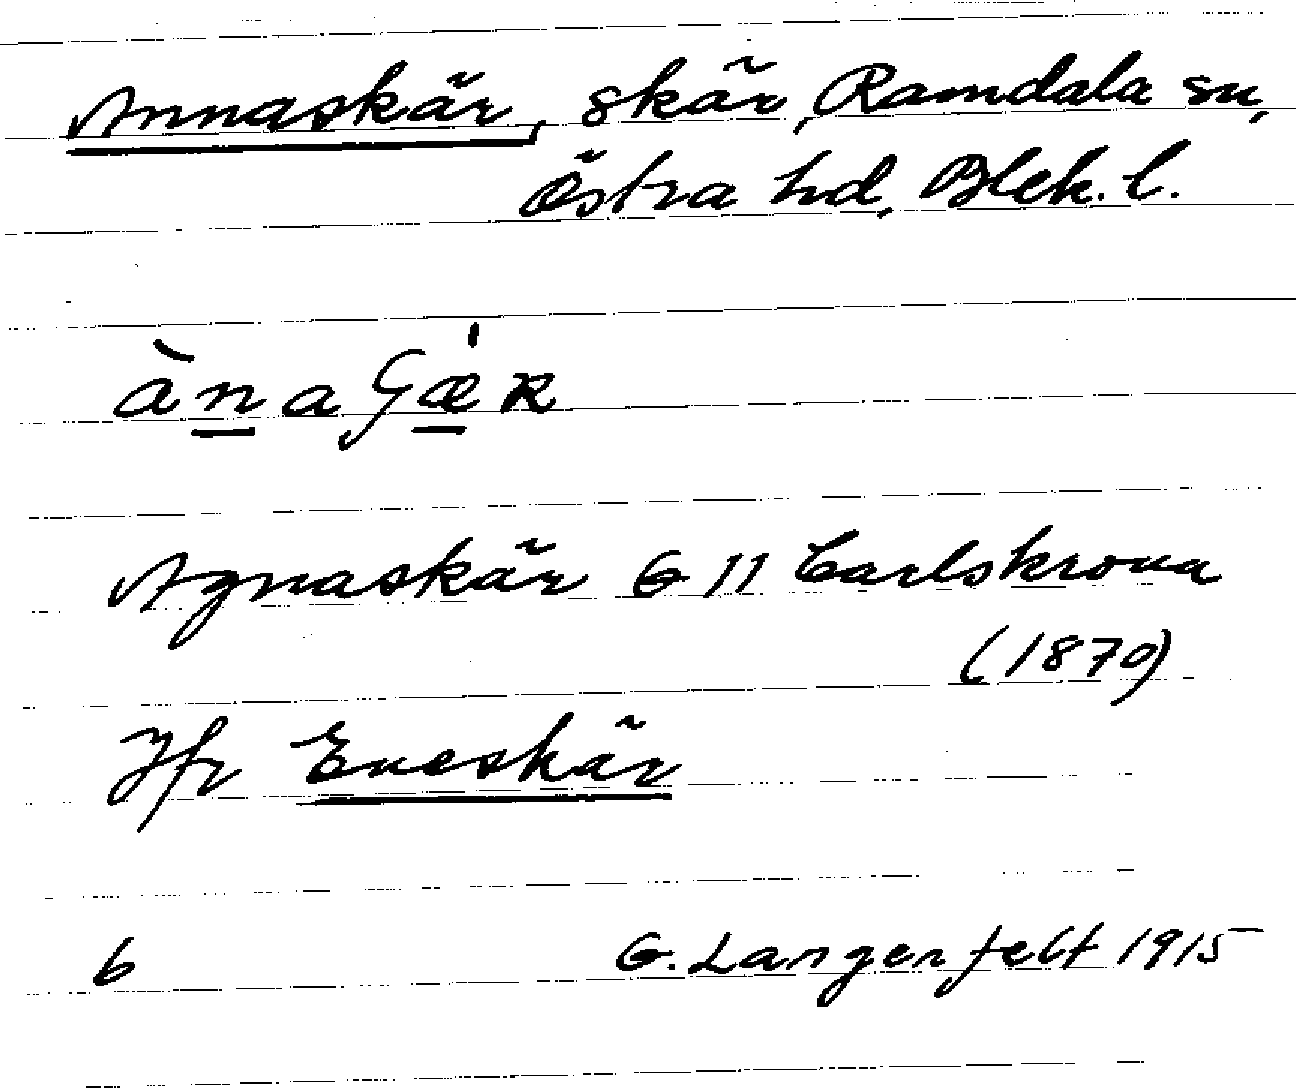 Annaskär, skär, Ramdala sn,
Östra hd, Blek. l.
ànaʃǽʀ
Agnaskär G 11 Carlskrona
(1870)
Jfr Eneskär
6 G. Langenfelt 1915